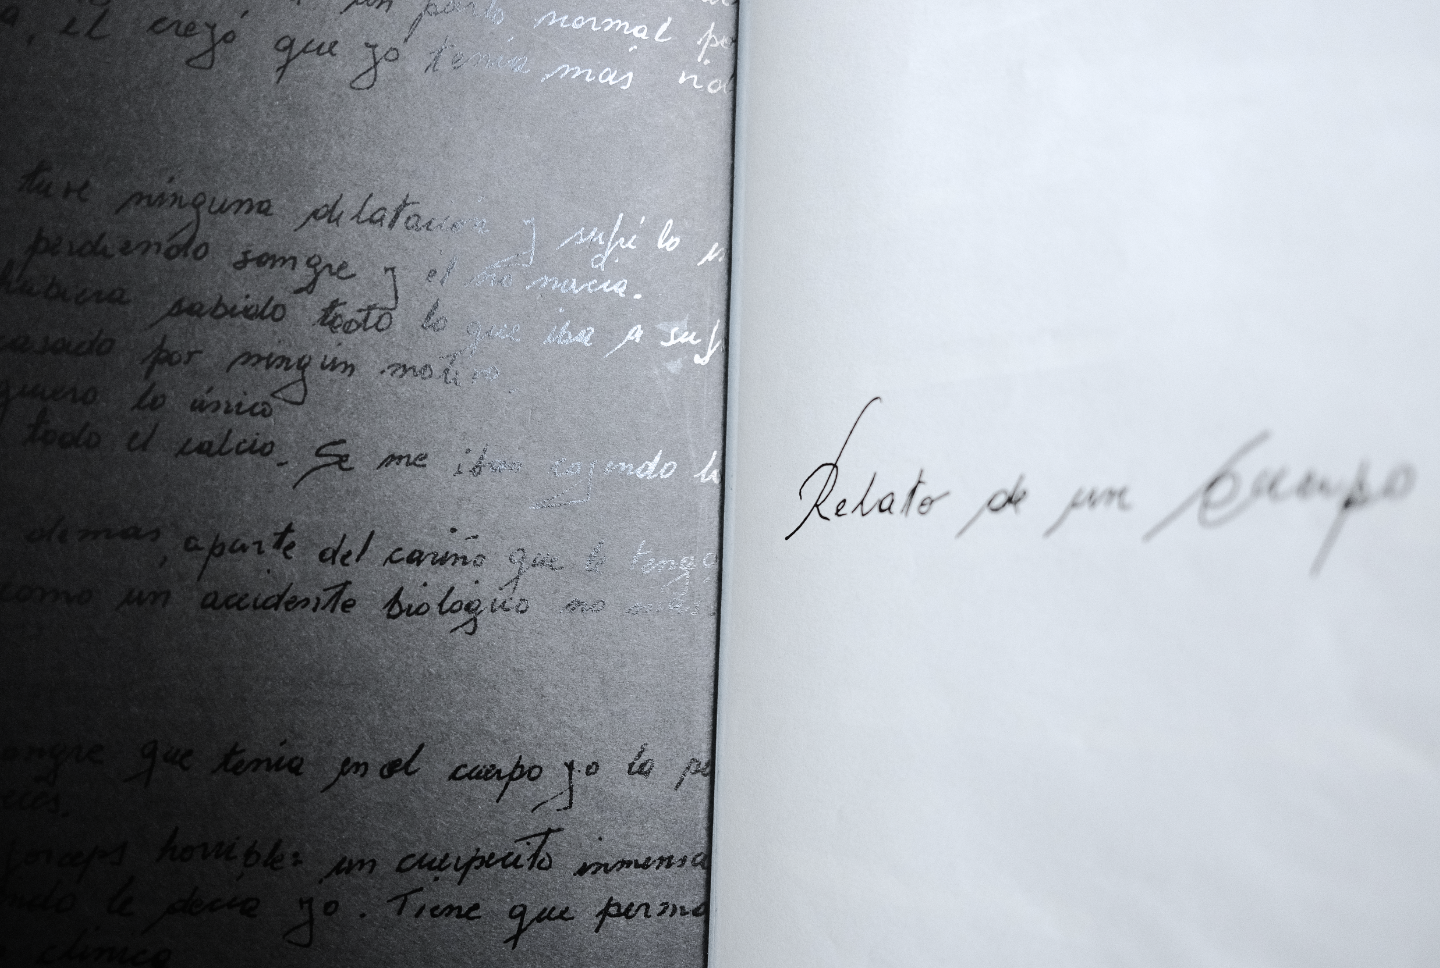 un parto normal
él creyó que yo tenía más
tuve ninguna delatación y sufrí lo
perdiendo sangre y él no nacía.
hubiera sabido todo lo que iba a
casado por ningún motivo.
quiero lo único
todo el calcio. Se me iban cogendo
demas, aparte del cariño que le tengo
como un accidente biológico no
sangre que tenía en el cuerpo yo la
forceps horribles un cuerpecito
le decia yo. Tiene que
clinica
Relato de un Cuerpo